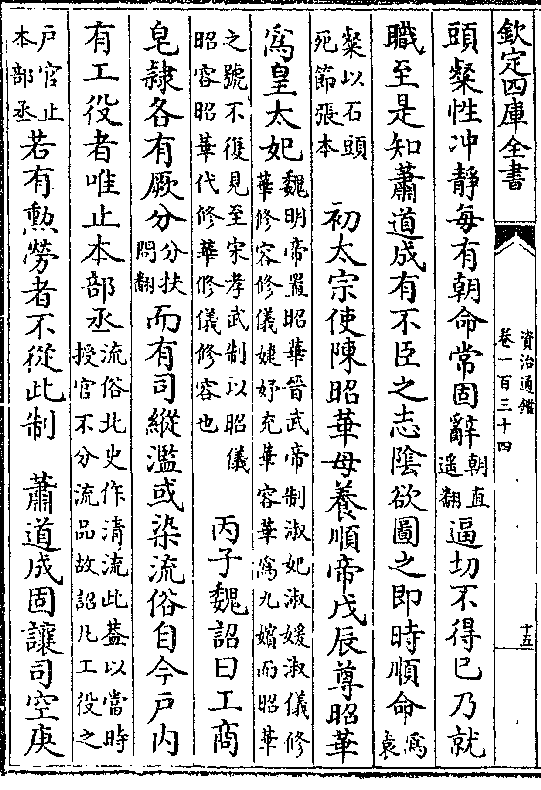 欽定四庫全書
資治通鑑
卷一百三十四
十五
頭粲性沖静每有朝命常固辭朝直遥翻逼切不得已乃就
職至是知蕭道成有不臣之志隂欲圖之即時順命為袁
粲以石頭死節張本 初太宗使陳昭華母養順帝戊辰尊昭華
為皇太妃魏明帝置昭華晉武帝制淑妃淑媛淑儀修華修容修儀婕妤充華容華為九嬪而昭華
之號不復見至宋孝武制以昭儀昭容昭華代修華修儀修容也 丙子魏詔曰工商
皂隸各有厥分分扶問翻而有司縱濫或染流俗自今户内
有工役者唯止本部丞流俗北史作清流此葢以當時授官不分流品故詔凡工役之
户官止本部丞若有勲勞者不從此制 蕭道成固讓司空庚